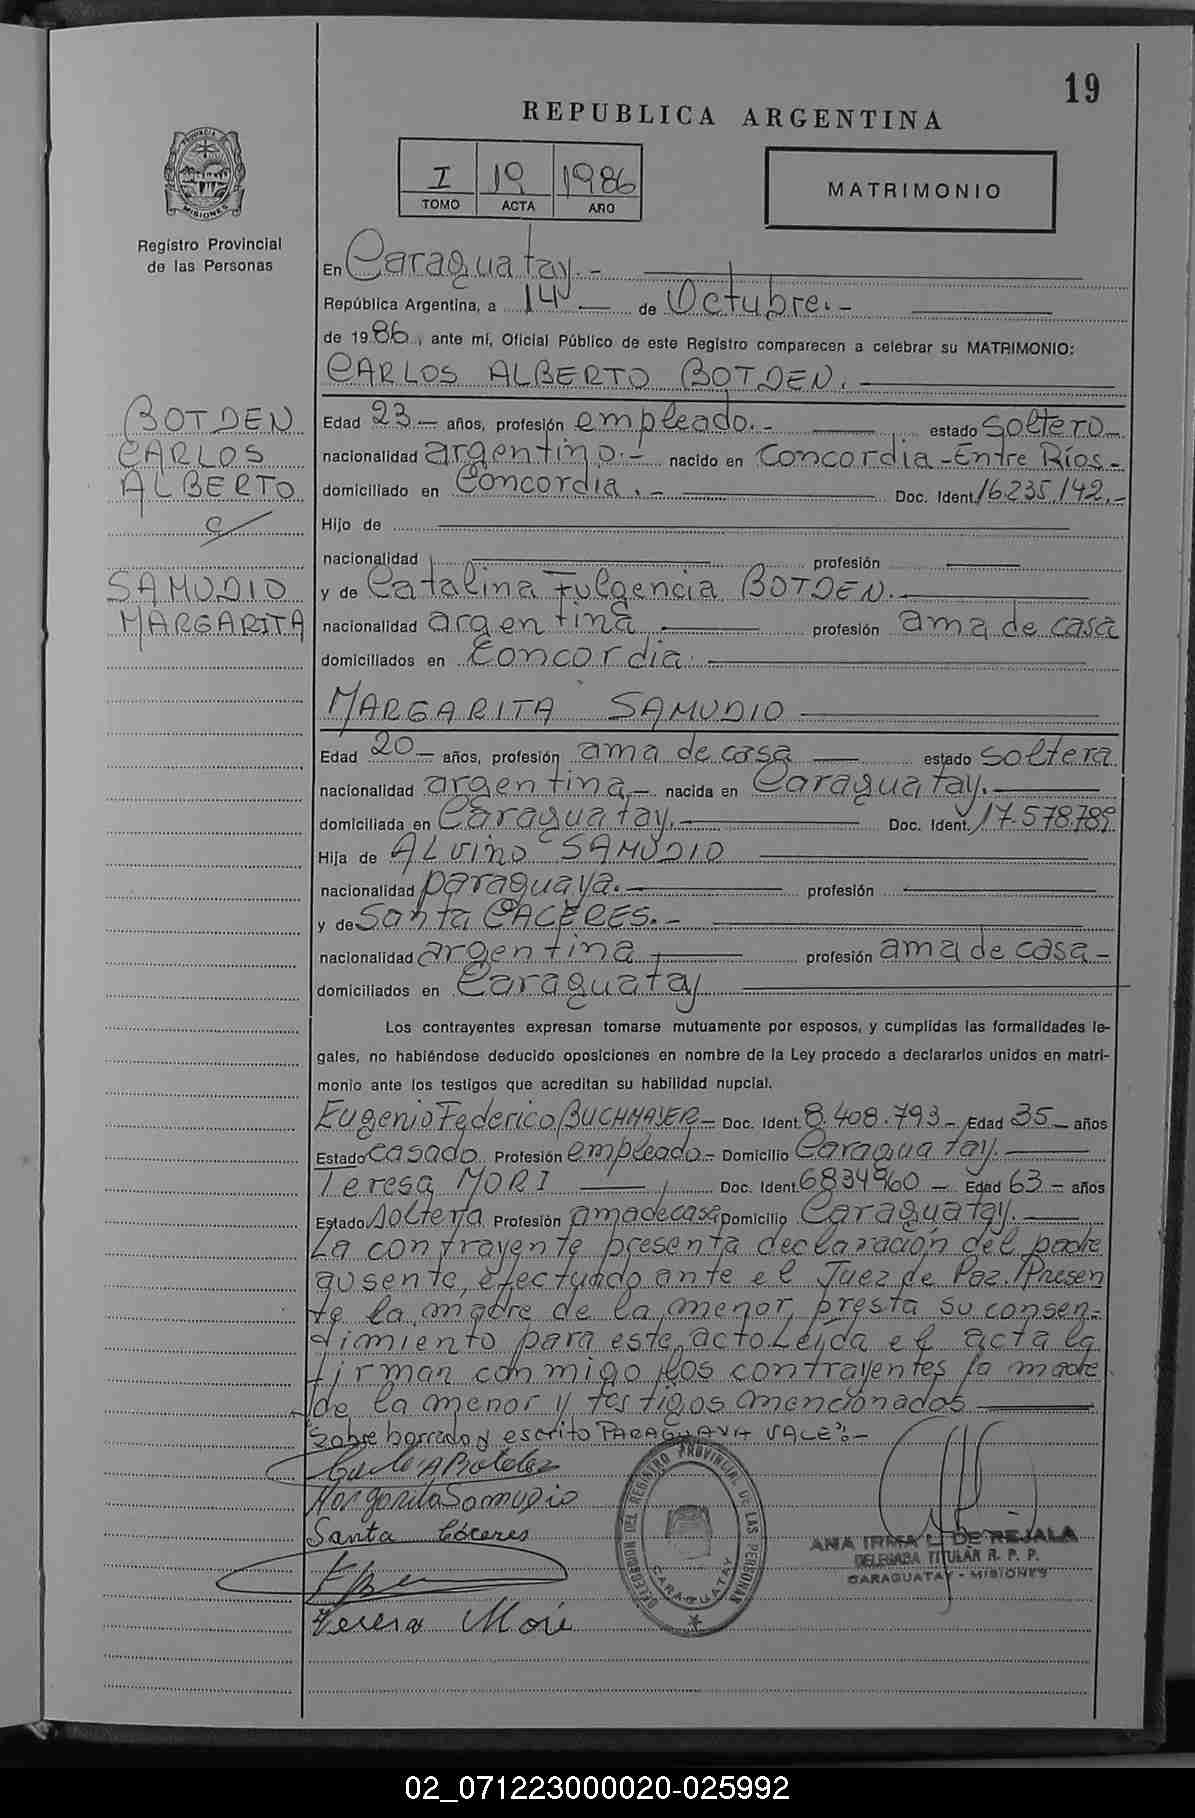 19
REPUBLICA ARGENTINA
I 19 1986
TOMO ACTA AÑO
MATRIMONIO
PROVINCIA DE
MISIONES
Registro Provincial
de las Personas
En Caraguatay.-
República Argentina, a 14 de Octubre.-
de 1986, ante mí, Oficial Público de este Registro comparecen a celebrar su MATRIMONIO:
CARLOS ALBERTO BOTDEN.
BOTDEN
CARLOS
ALBERTO
c/
SAMUDIO
MARGARITA
Edad 23 años, profesión empleado.- estado soltero
nacionalidad argentino.- nacido en Concordia-Entre Ríos-
domiciliado en Concordia.- Doc. Ident. 16.235.142.-
Hijo de
nacionalidad profesión
y de Catalina Fulgencia BOTDEN.
nacionalidad argentina profesión ama de casa
domiciliados en Concordia.
MARGARITA SAMUDIO
Edad 20 años, profesión ama de casa estado soltera
nacionalidad argentina.- nacida en Caraguatay.
domiciliada en Caraguatay. Doc. Ident. 17.578.789
Hija de ALvino SAMUDIO
nacionalidad paraguaya. profesión
y de Santa CACERES.-
nacionalidad argentina profesión ama de casa-
domiciliados en Caraguatay
Los contrayentes expresan tomarse mutuamente por esposos, y cumplidas las formalidades le-
gales, no habiéndose deducido oposiciones en nombre de la Ley procedo a declararlos unidos en matri-
monio ante los testigos que acreditan su habilidad nupcial.
Eugenio Federico BUCHMAYER- Doc. Ident. 8.408.793- Edad 35 años
Estado casado Profesión empleado- Domicilio Caraguatay.
Teresa MORI Doc. Ident. 6834960 - Edad 63- años
Estado soltera Profesión ama de casa Domicilio Caraguatay.
La contrayente presenta declaración del padre
ausente, efectuado ante el Juez de Paz. Presen
te la madre de la menor, presta su consen-
timiento para este acto. Leída el acta la
firman conmigo los contrayentes la madre
de la menor y testigos mencionados
Sobre borrado y escrito PARAGUAYA VALE:-
Margarita Samudio
Santa Cáceres
Teresa Mori
DELEGACION DEL REGISTRO PROVINCIAL DE LAS PERSONAS
CARAGUATAY
ANA IRMA L. DE REJALA
DELEGADA TITULAR R. P. P.
CARAGUATAY - MISIONES
02_071223000020-025992